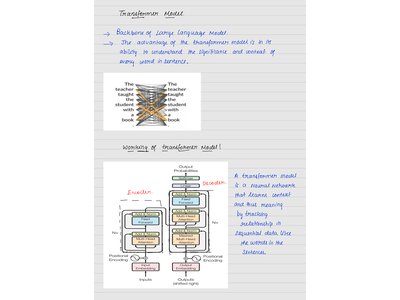 Transformer Model
→ Backbone of Large Language Model.
→ The advantage of the transformer model is in its
ability to understand the significance and context of
every word in sentence.
The The
teacher teacher
taught taught
the the
student student
with with
a a
book book
Working of transformer Model!
Output
Probabilities
Softmax
Linear
Encoder
Decoder
Add & Norm
Feed
Forward
Add & Norm
Multi-Head
Attention
Add & Norm
Feed
Forward
Add & Norm
Multi-Head
Attention
Add & Norm
Masked
Multi-Head
Attention
Nx
Nx
Positional
Encoding
Positional
Encoding
Input
Embedding
Output
Embedding
Inputs
Outputs
(shifted right)
A transformer model
is a Neural Network
that learns context
and thus meaning
by tracking
relationship in
sequential data like
the words in the
sentences.